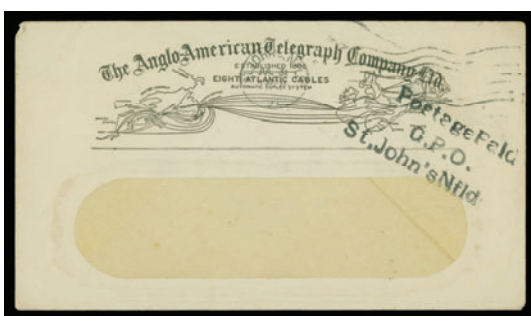 The Anglo-American Telegraph Company Ltd.
ESTABLISHED 1866
EIGHT ATLANTIC CABLES
AUTOMATIC DUPLEX SYSTEM
Postage Paid
G.P.O.
St. John's Nfld.